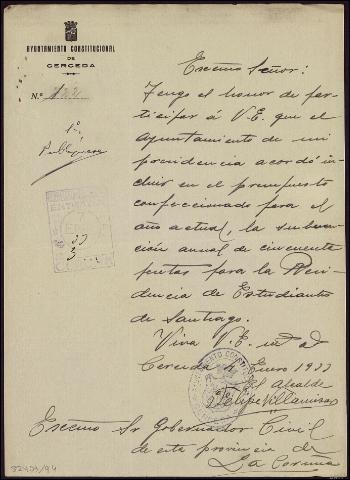 AYUNTAMIENTO CONSTITUCIONAL
DE
CERCEDA
N.º 122
1º
Excmo Señor:
Tengo el honor de par-
ticipar á V.E. que el
Ayuntamiento de mi
presidencia acordó in-
cluir en el presupuesto
confeccionado para el
año actual, la subven-
ción anual de cincuenta
pesetas para la Resi-
dencia de Estudiantes
de Santiago.
Viva V.E. m a
Cerceda Enero 1933
El Alcalde
Felipe Villamisar
Excmo Sr Gobernador Civil
de esta provincia de
La Coruña